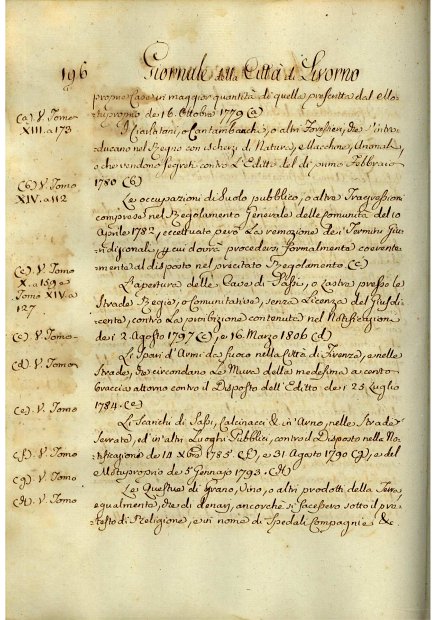 196
Giornale della Città di Livorno
proprie Case in maggior quantità di quella prescritta dal Mo-
tuproprio de 16. Ottobre 1779 (a)
(a) V. Tomo
XIII. a 173
I Ciarlatani, o Cantambanchi, o altri Forestieri, che s'intro-
ducano nel Regno con ischerzi di Natura, Macchine, Animali,
o che vendono segreti contro L'Editto del dì primo Febbraio
1780 (b)
(b) V. Tomo
XIV. a 112
Le occupazioni di Suolo pubblico, o altre Trasgressioni
comprese nel Regolamento Generale delle Comunità del 10
Aprile 1782, eccettuato però La remozione dei Termini Giu-
risdizionali, p cui dovrà procedersi formalmente coerente-
mente al disposto nel precitato Regolamento (c)
(c) V. Tomo
X. a 159 e
Tomo XIV. a
127
L'apertura delle Cave di Sassi, o Lastre presso le
Strade Regie, o Comunitative, senza Licenza del Giusdi-
cente, contro La proibizione contenuta nel Notificazioni
de i 2. Agosto 1797 (c), e 16. Marzo 1806 (d)
(c) V. Tomo
(d) V. Tomo
Gli Spari d'Armi da fuoco nella Città di Firenze, e nelle
Strade, che circondano Le Mura della medesima a cento
braccia attorno contro il Disposto dell'Editto de i 25 Luglio
1784. (e)
(e) V. Tomo
Li Scarichi di Sassi, Calcinacci & in Arno, nelle Strade
Serrate, ed in altri Luoghi Pubblici, contro il Disposto nella No-
tificazione de 14 Xbre 1785. (f), e 31 Agosto 1790 (g), e del
Motuproprio de 5 Gennaio 1793. (h)
(f) V. Tomo
(g) V. Tomo
(h) V. Tomo
Le Questue di Grano, Vino, o altri prodotti della Terra
egualmente, che di denari, ancorchè si facessero sotto il pre-
testo di Religione, e in nome di Spedali Compagnie &c.